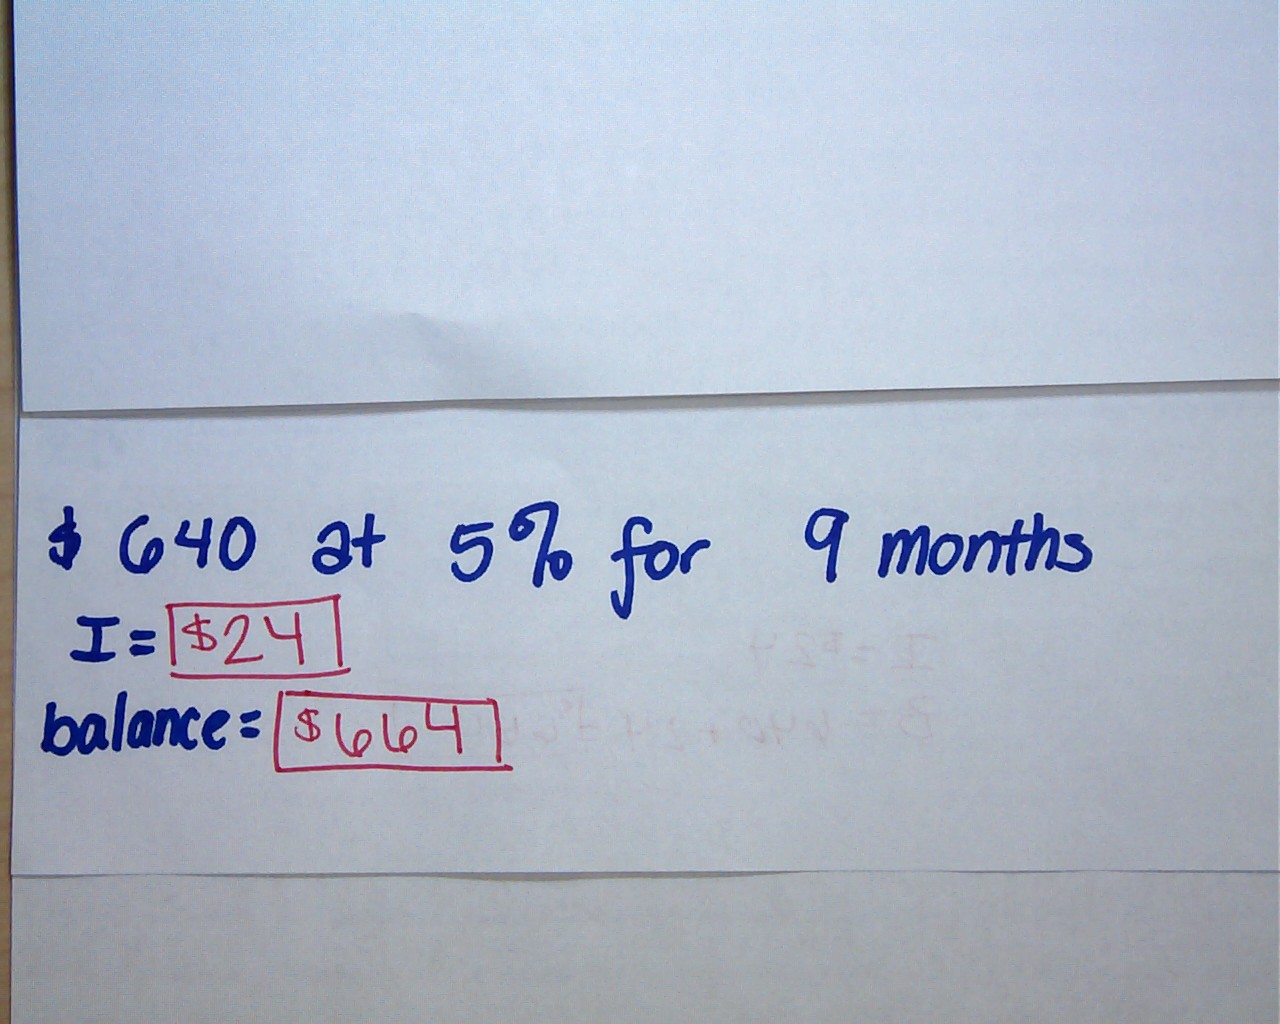 $ 640 at 5% for 9 months
I = $24
balance = $664